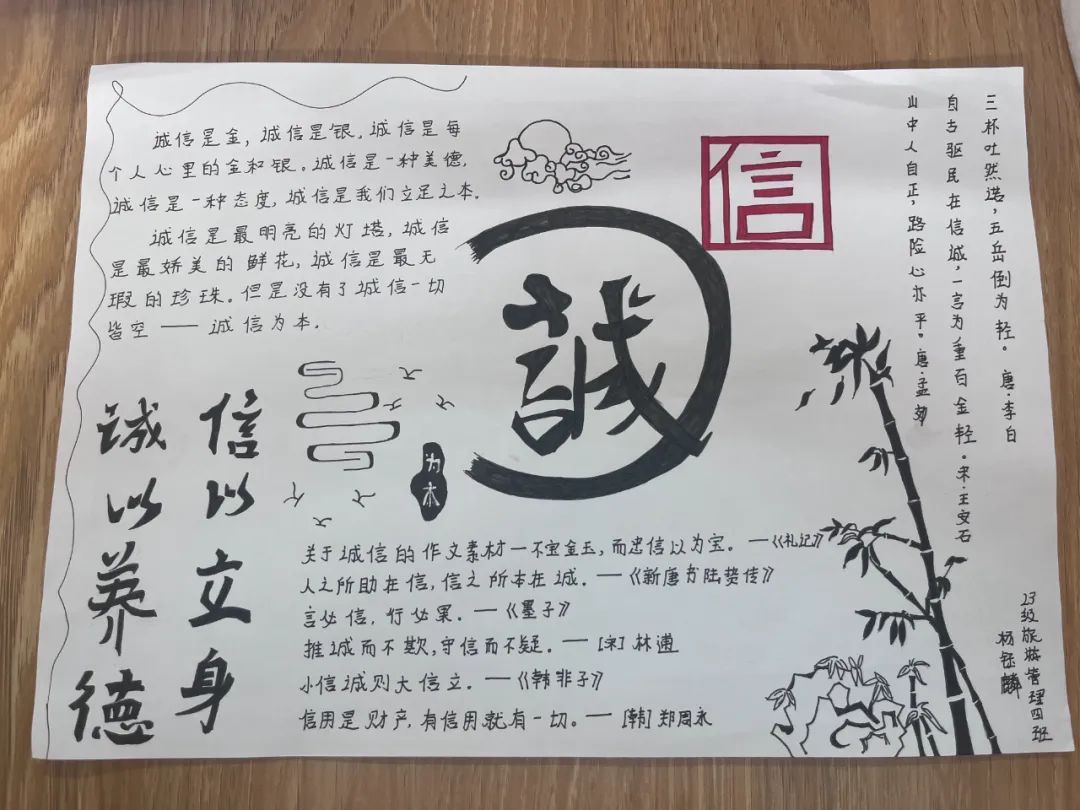 诚信是金，诚信是银，诚信是每
个人心里的金和银。诚信是一种美德，
诚信是一种态度，诚信是我们立足之本。
诚信是最明亮的灯塔，诚信
是最娇美的鲜花，诚信是最无
瑕的珍珠。但是没有了诚信一切
皆空——诚信为本。
信
誠
为本
三杯吐然诺，五岳倒为轻。唐·李白
自古驱民在信诚，一言为重百金轻。宋·王安石
山中人自正，路险心亦平。唐·孟郊
信以立身
诚以养德
关于诚信的作文素材一不宝金玉，而忠信以为宝。—《礼记》
人之所助在信，信之所本在诚。—《新唐书陆贽传》
言必信，行必果。—《墨子》
推诚而不欺，守信而不疑。—[宋]林逋
小信诚则大信立。—《韩非子》
信用是财产，有信用就有一切。—[韩]郑周永
23级旅游管理四班
杨钰麟